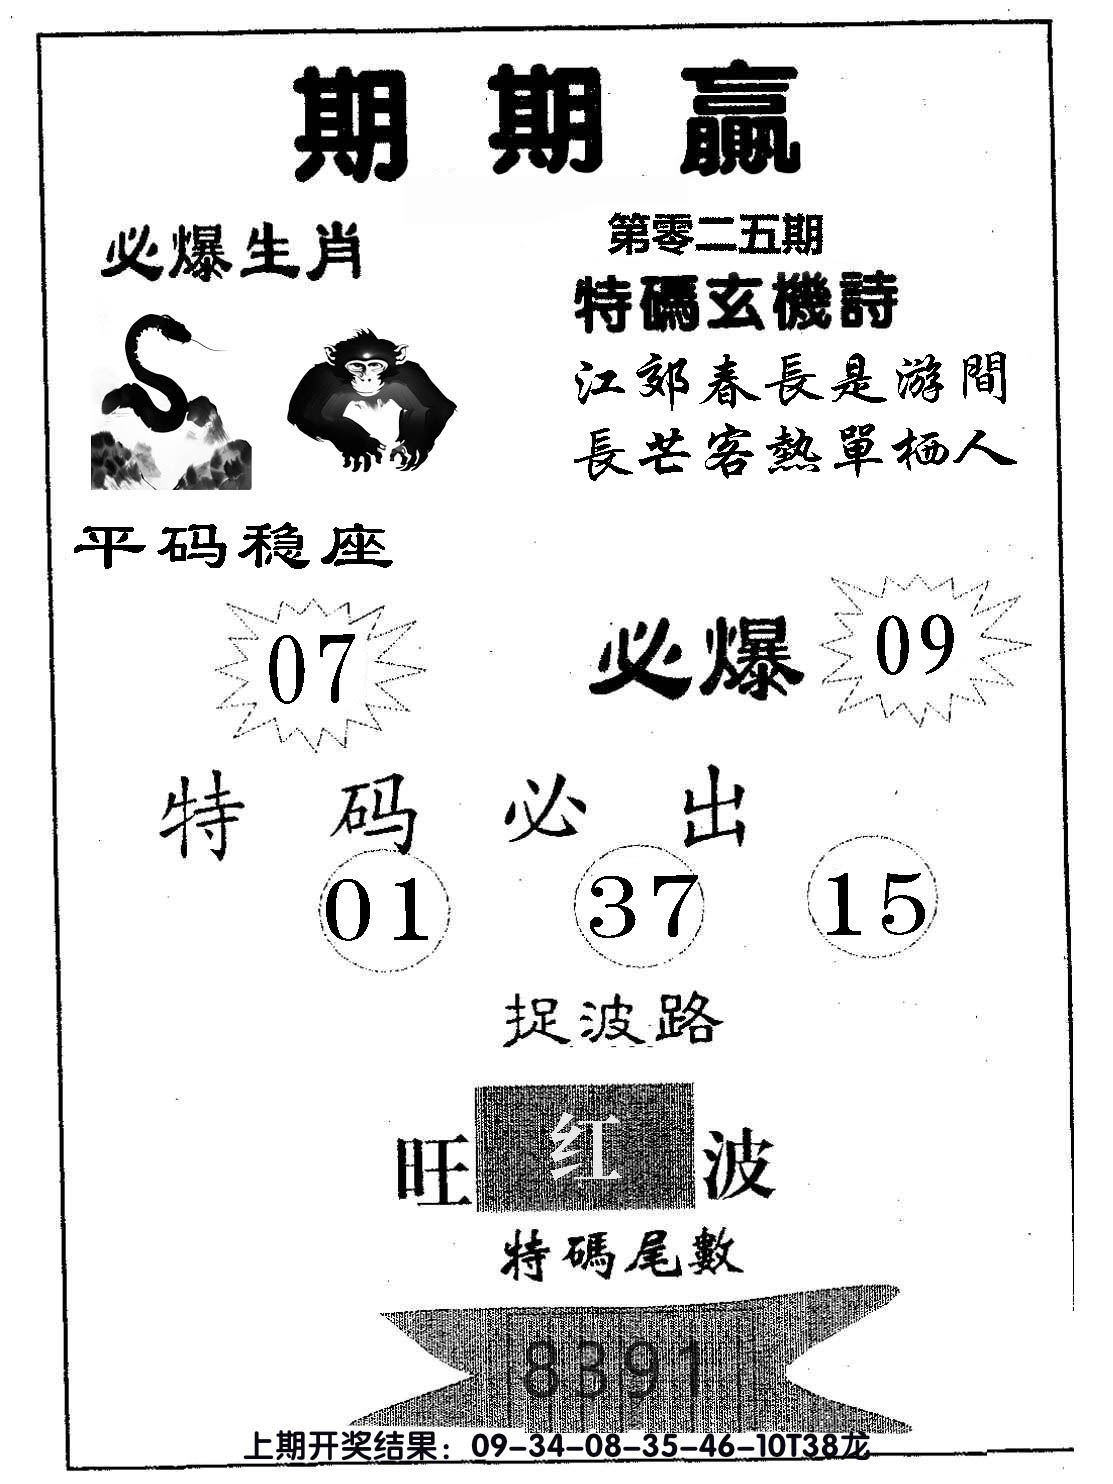 期期贏
必爆生肖
第零二五期
特碼玄機詩
江郊春長是游間
長芒客熱單栖人
平码稳座
07
必爆 09
特码必出
01 37 15
捉波路
旺红波
特碼尾數
8391
上期开奖结果：09-34-08-35-46-10T38龙